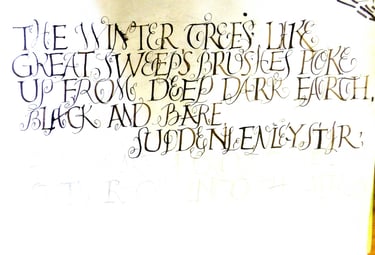 THE WINTER TREES, LIKE
GREAT SWEEPS BRUSHES POKE
UP FROM DEEP DARK EARTH,
BLACK AND BARE
STIR;